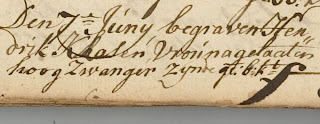 Den 7de Juny begraven Hen-
drik Klasen Vrou nagelaaten
hoog Zwanger Zynde